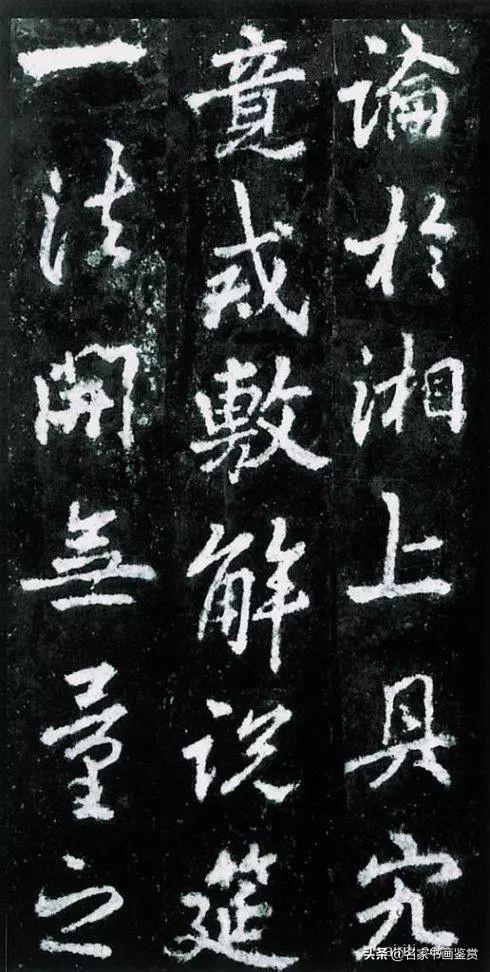 論於湘上具究
竟戒敷解説筵
一法開無量之
头条 @名家书画鉴赏